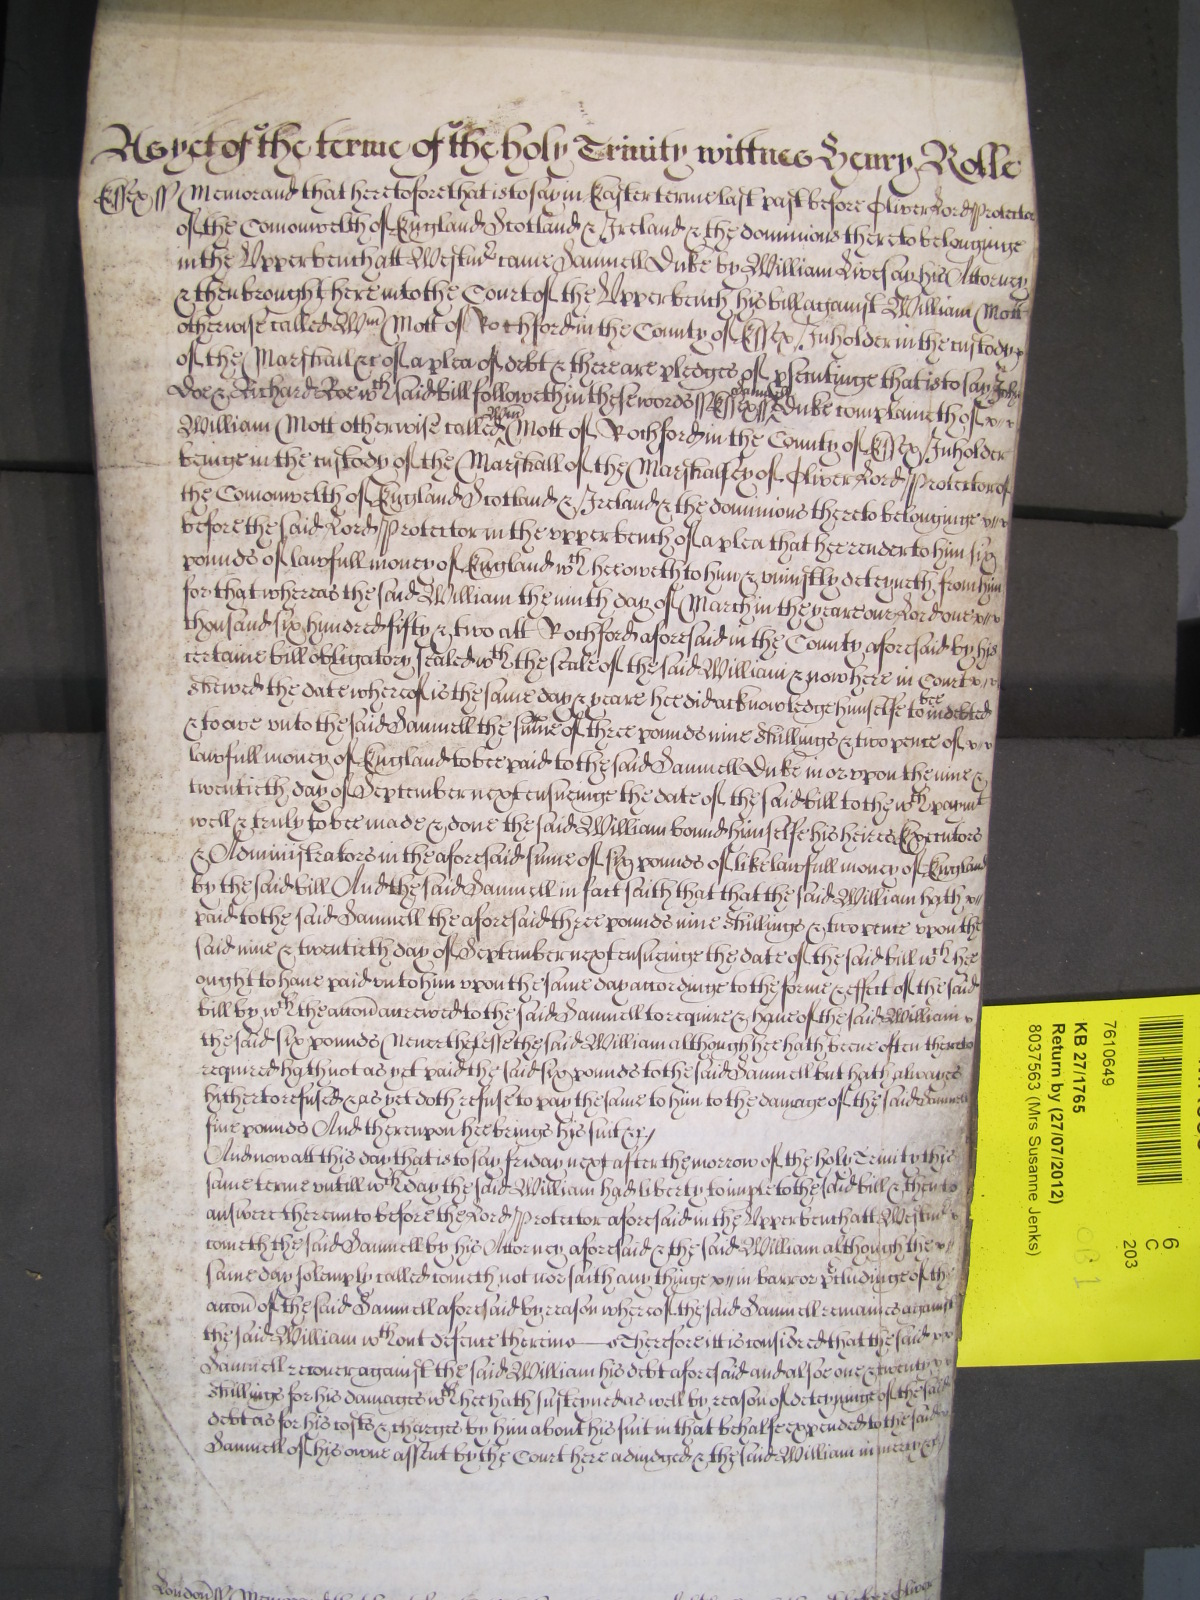 As yet of the terme of the holy Trinity wittnes Henry Rolle
Essex ss Memorand that heretofore that is to say in Easter terme last past before Oliver Lord Protector
of the Comonwelth of England Scotland & Ireland & the dominions thereto belonginge
in the Vpper bench att Westm came Samuell Duke by William Livesay his Attorney
& then brought here into the Court of the Vpper bench his bill against William Mott
otherwise called Wm Mott of Rochford in the County of Essex Inholder in the custody
of the Marshall &c of a plea of debt & there are pledges of psecutinge that is to say John
Doe & Richard Roe wch said bill followeth in these words ss Essex ss Samuell Duke complaineth of
William Mott otherwise called Wm Mott of Rochford in the County of Essex Inholder
beinge in the custody of the Marshall of the Marshalsey of Oliver Lord Protector of
the Comonwelth of England Scotland & Ireland & the dominions thereto belonginge
before the said Lord Protector in the vpper bench of a plea that hee render to him six
pounds of lawfull money of England wch hee oweth to him & vniustly deteyneth from him
for that whereas the said William the ninth day of March in the yeare our Lord one
thousand six hundred fifty & two att Rochford aforesaid in the County aforesaid by his
certaine bill obligatory sealed wth the seale of the said William & now here in Court
shewed the date whereof is the same day & yeare hee did acknowledge himselfe to bee indebted
& to owe vnto the said Samuell the sume of three pounds nine shillings & two pence of
lawfull money of England to bee paid to the said Samuell Duke in or vpon the nine &
twentieth day of September next ensueinge the date of the said bill to the wch paymt
well & truly to bee made & done the said William bound himselfe his heires Executors
& Administrators in the aforesaid sume of six pounds of like lawfull money of England
by the said bill And the said Samuell in fact saith that that the said William hath
paid to the said Samuell the aforesaid three pounds nine shillings & two pence vpon the
said nine & twentieth day of September next ensueinge the date of the said bill wch hee
ought to haue paid vnto him vpon the same day accordinge to the forme & effect of the said
bill by wch the accon accrewed to the said Samuell to require & haue of the said William
the said six pounds Neuerthelesse the said William although hee hath beene often thereto
required hath not as yet paid the said six pounds to the said Samuell but hath alwayes
hitherto refused & as yet doth refuse to pay the same to him to the damage of the said Samuell
fiue pounds And therevpon hee brings his suit &c
And now att this day that is to say friday next after the morrow of the holy Trinity this
same terme vntill wch day the said William had liberty to imple to the said bill & then to
answere therevnto before the Lord Protector aforesaid in the Vpper bench att Westm
cometh the said Samuell by his Attorney aforesaid & the said William although the
same day solemply called cometh not nor saith any thinge in barr or pcludinge of the
accon of the said Samuell aforesaid by reason whereof the said Samuell remaines against
the said William wthout defence therein Therefore itt is considered that the said
Samuell recouer against the said William his debt aforesaid and alsoe one & twenty
shillings for his damages wch hee hath susteyned as well by reason of deteyninge of the said
debt as for his costs & charges by him about his suit in that behalfe expended to the said
Samuell of his owne assent by the Court here adiudged & the said William in mercy &c
London ss Memorand
7610649
KB 27/1765
Return by (27/07/2012)
8037563 (Mrs Susanne Jenks)
6
C
203
CB 1